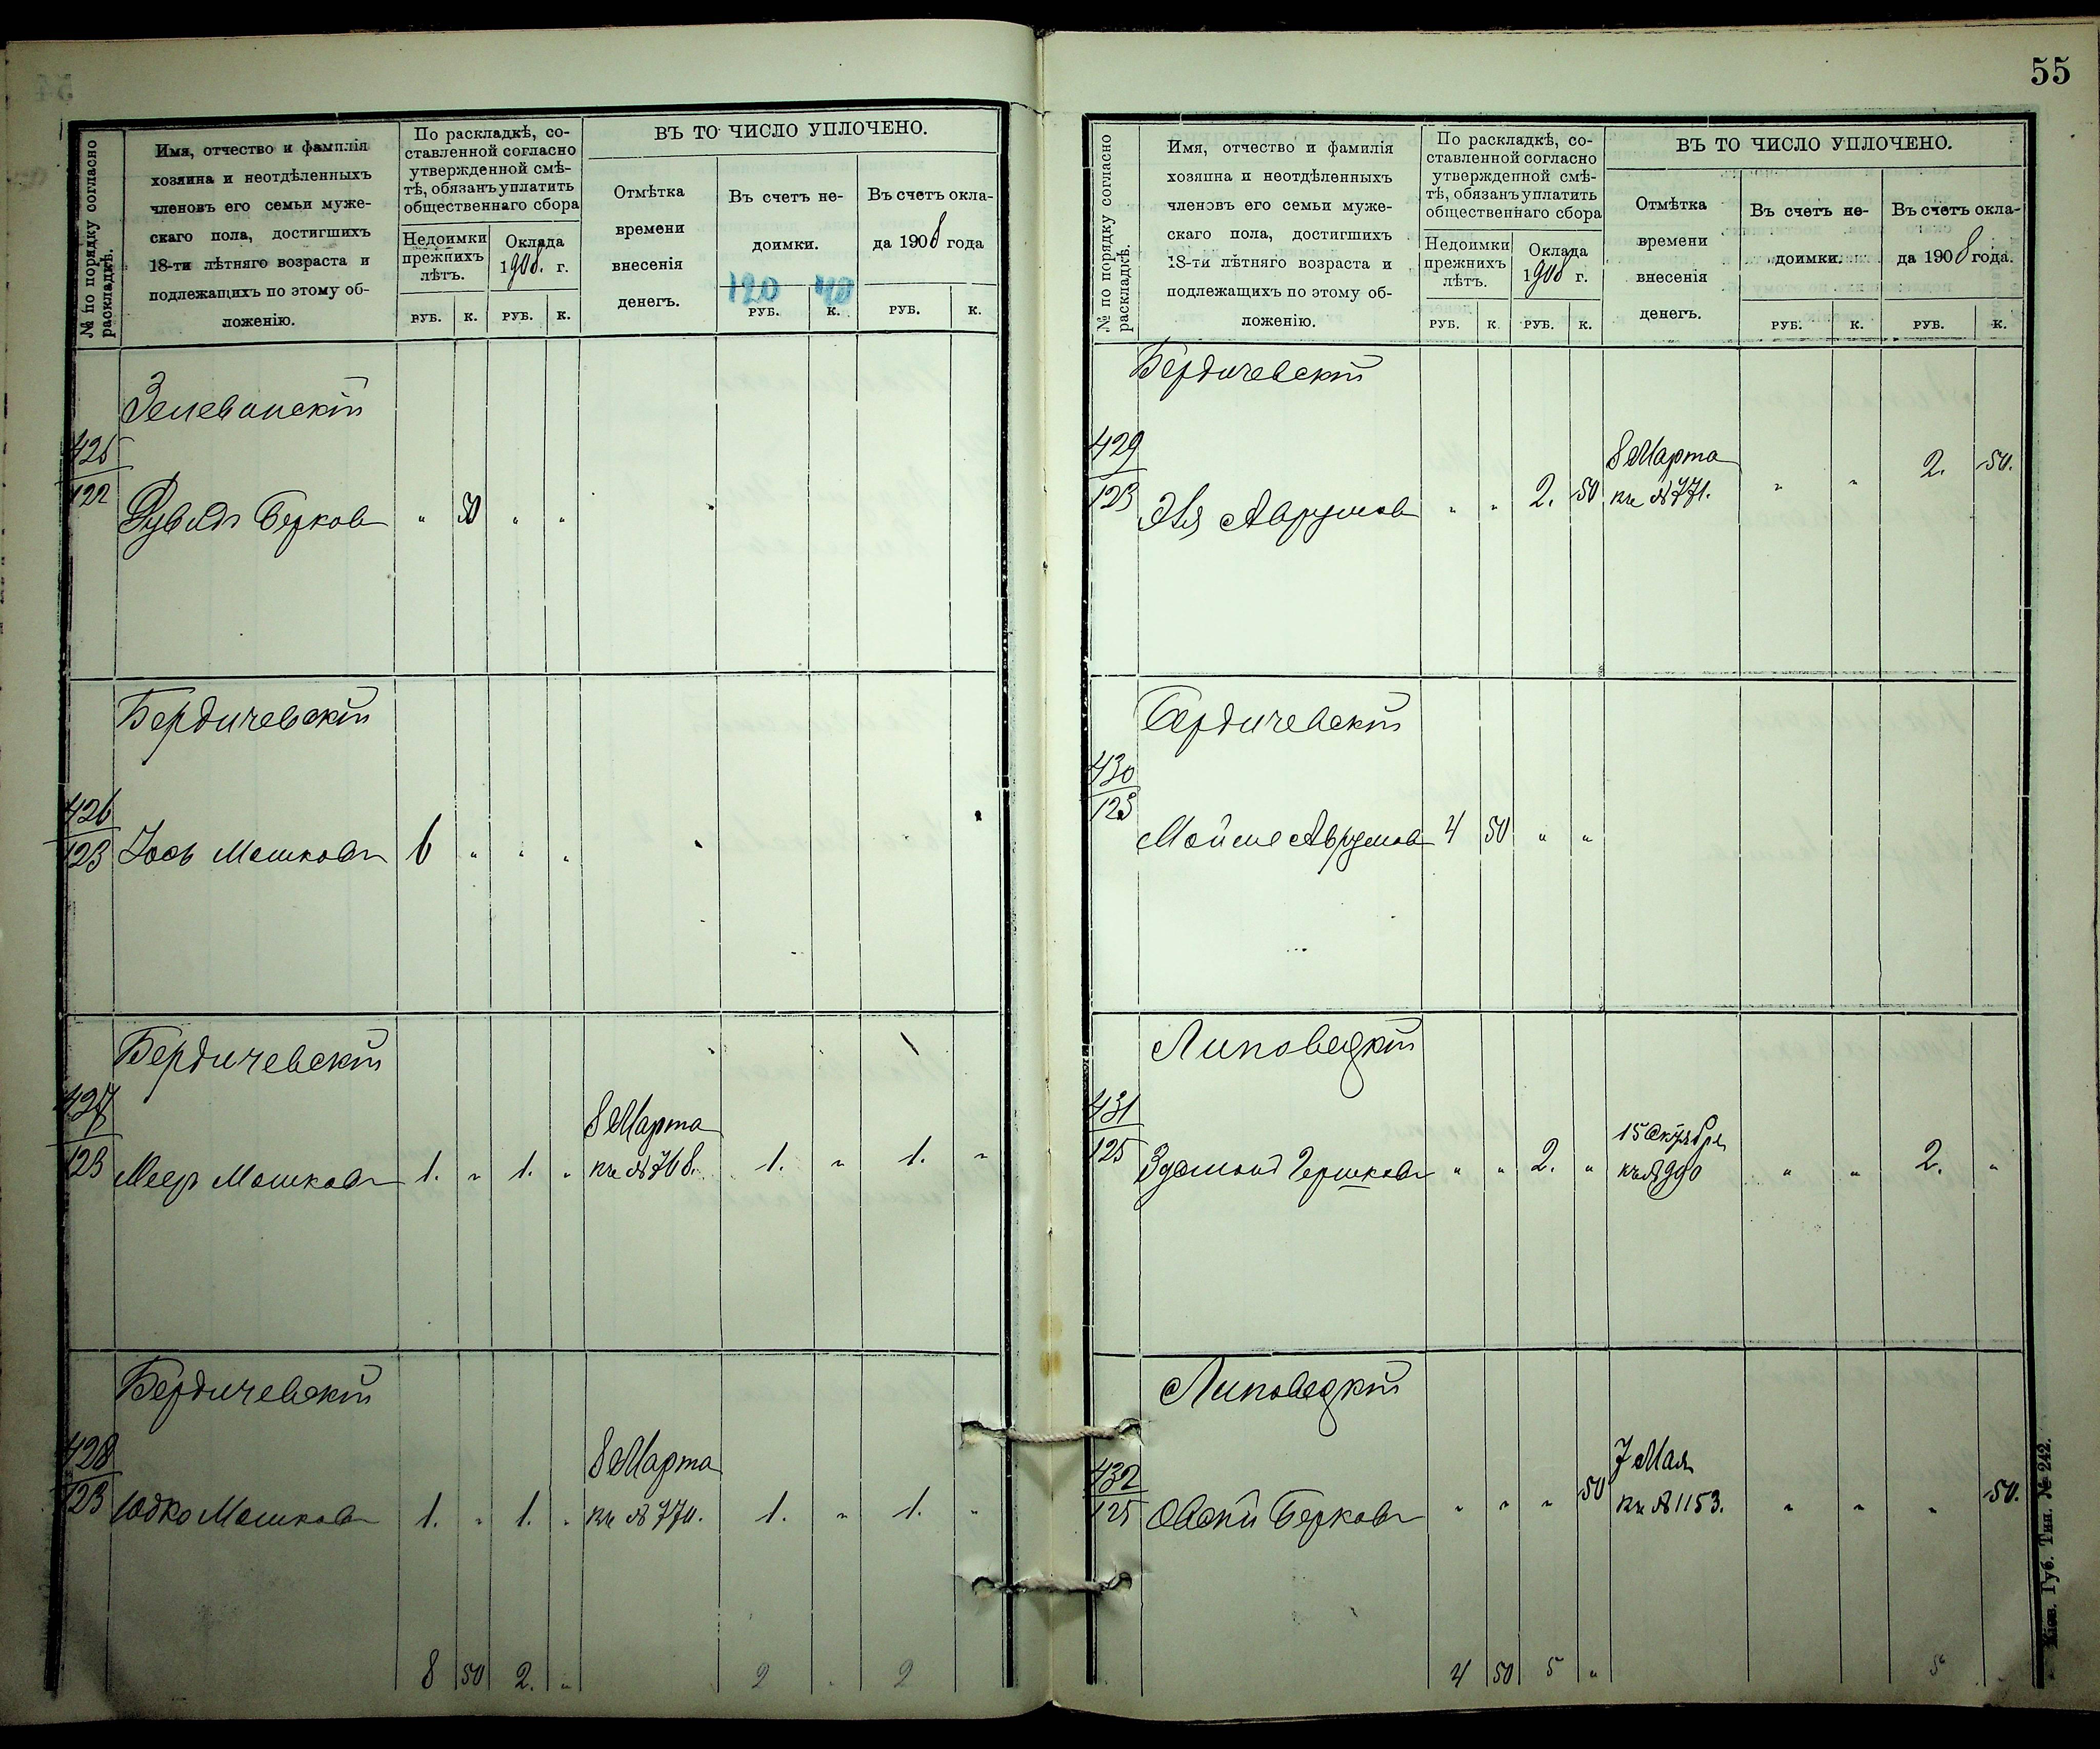 55
№ по порядку согласно раскладкѣ.
Имя, отчество и фамилія
хозяина и неотдѣленныхъ
членовъ его семьи муже-
скаго пола, достигшихъ
18-ти лѣтняго возраста и
подлежащихъ по этому об-
ложенію.
По раскладкѣ, со-
ставленной согласно
утвержденной смѣ-
тѣ, обязанъ уплатить
общественнаго сбора
Недоимки
прежнихъ
лѣтъ.
Оклада
1908. г.
РУБ. К. РУБ. К.
ВЪ ТО ЧИСЛО УПЛОЧЕНО.
Отмѣтка
времени
внесенія
денегъ.
Въ счетъ не-
доимки.
120 40
РУБ. К.
Въ счетъ окла-
да 1908 года
РУБ. К.
425
122
Беркова „ 50 „ „
Бердичевскій
426
123
Іось Мошковъ 6 „ „ „
Бердичевскій
427
123
8 Марта
Меер Мошковъ 1. „ 1. „ къ № 768. 1. „ 1. „
Бердичевскій
428
123
8 Марта
Юдко Мошковъ 1. „ 1. „ къ № 770. 1. „ 1. „
8 50 2. „ 2 „ 2
№ по порядку согласно раскладкѣ.
Имя, отчество и фамилія
хозяина и неотдѣленныхъ
членовъ его семьи муже-
скаго пола, достигшихъ
18-ти лѣтняго возраста и
подлежащихъ по этому об-
ложенію.
По раскладкѣ, со-
ставленной согласно
утвержденной смѣ-
тѣ, обязанъ уплатить
общественнаго сбора
Недоимки
прежнихъ
лѣтъ.
Оклада
1908 г.
РУБ. К. РУБ. К.
ВЪ ТО ЧИСЛО УПЛОЧЕНО.
Отмѣтка
времени
внесенія
денегъ.
Въ счетъ не-
доимки.
РУБ. К.
Въ счетъ окла-
да 1908 года.
РУБ. К.
Бердичевскій
429
123
8 Марта
Эля Аврумов „ „ 2. 50 къ № 771. „ „ 2. 50.
Бердичевскій
430
123
Мойше Аврумов 4 50 „ „
Липовецкій
431
125
15 Октября
Гершковъ „ „ 2. „ къ № 990 „ „ 2. „
Липовецкій
432
125
7 Мая
Берковъ „ „ „ 50 къ № 1153. „ „ „ 50.
4 50 5 „ 5 „
Кіев. Губ. Тип. № 242.